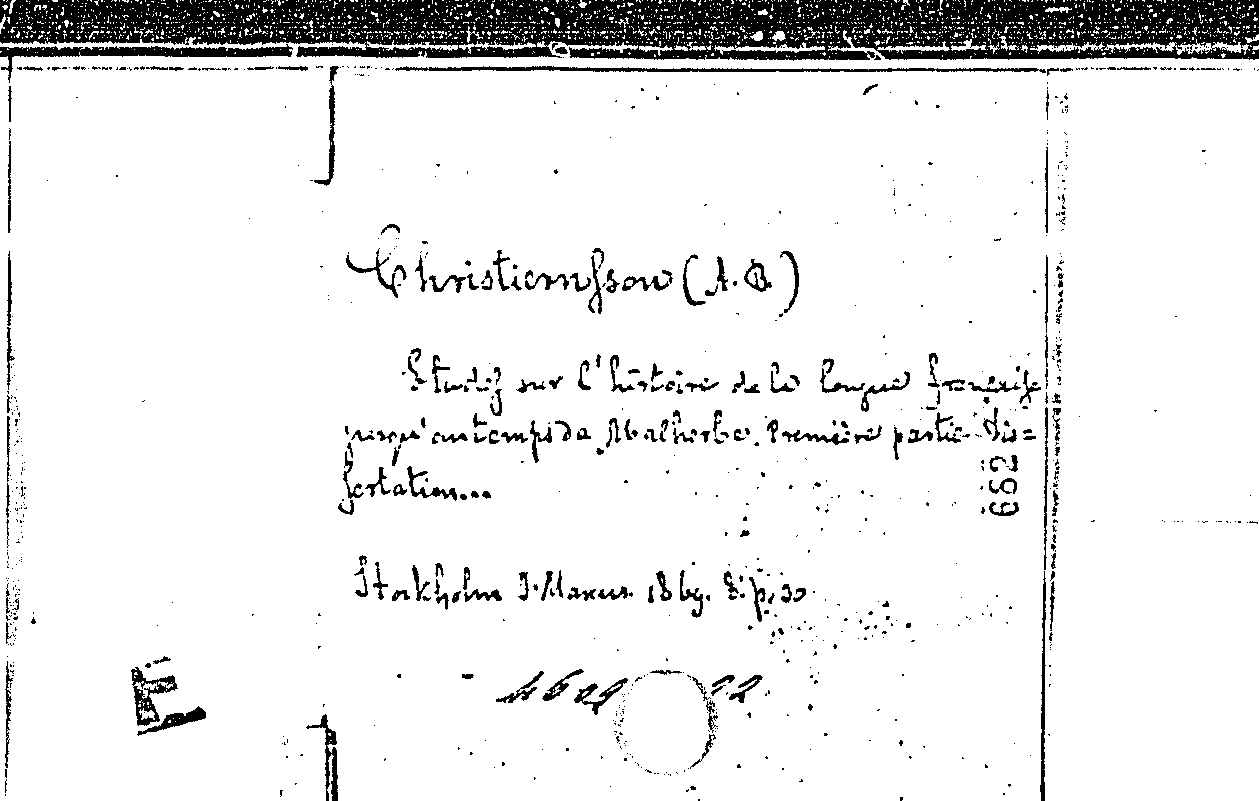 Christiernsson (A. B.)
Etudes sur l'histoire de la langue française
jusqu'au temps de Malherbe. Première partie Dis=
sertation...
662
Stockholm I. Marcus. 1869. 8° p. 30
E